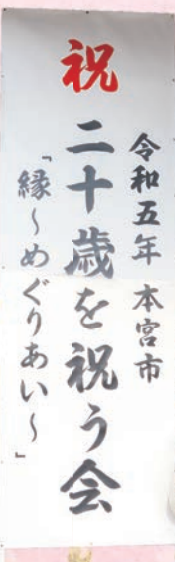 祝
令和五年 本宮市
二十歳を祝う会
「縁～めぐりあい～」